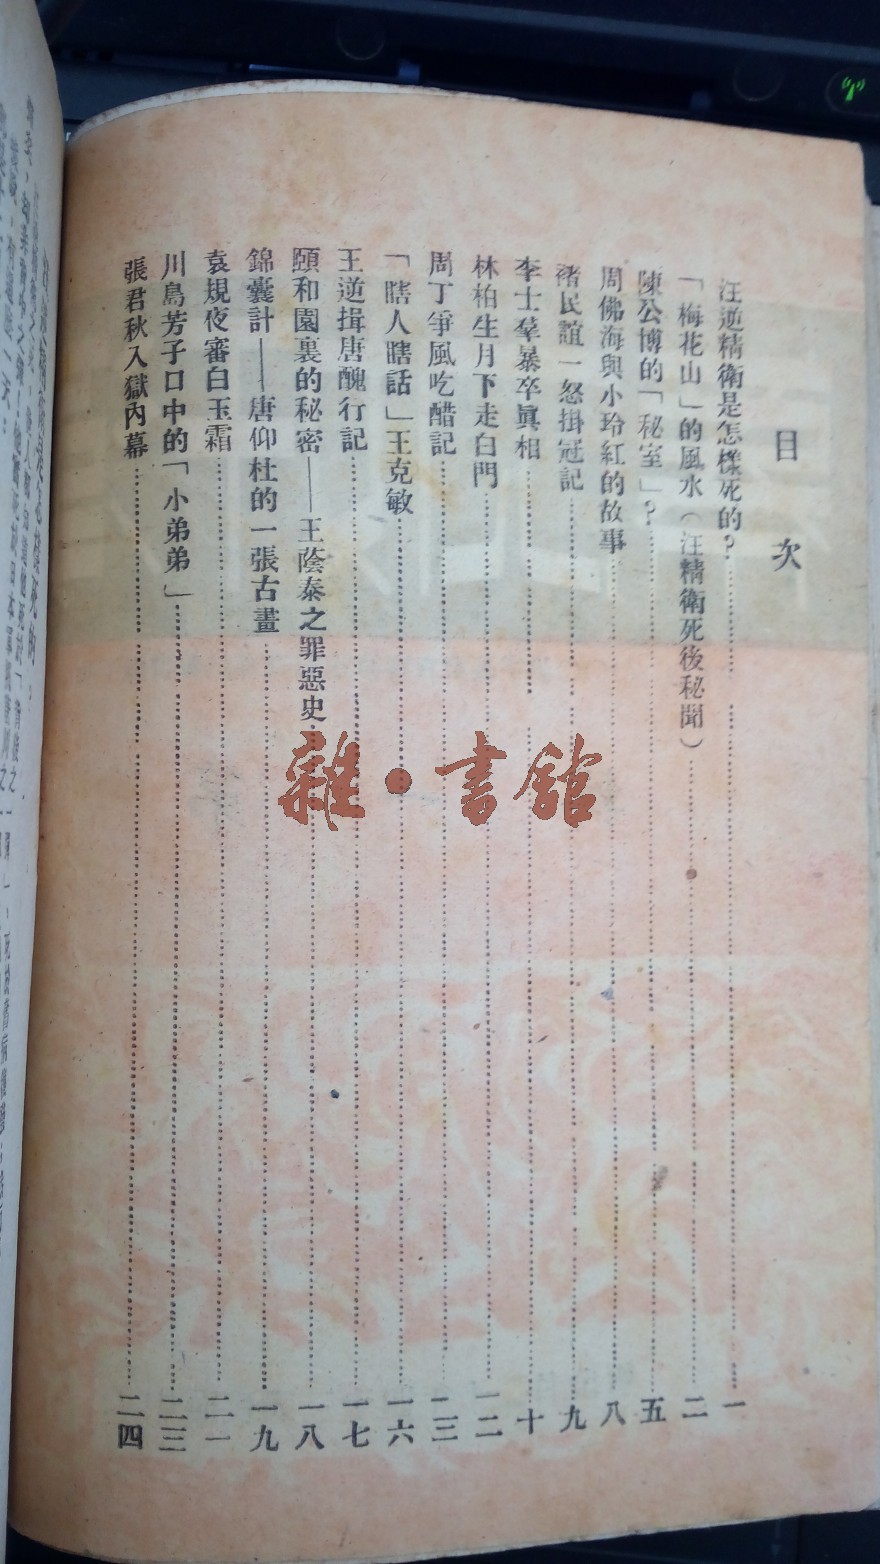 目次
汪逆精衛是怎樣死的？……一
「梅花山」的風水（汪精衛死後秘聞）……二
陳公博的「秘室」？……五
周佛海與小玲紅的故事……八
褚民誼一怒掛冠記……九
李士羣暴卒眞相……十
林柏生月下走白門……一二
周丁爭風吃醋記……一三
「瞎人瞎話」王克敏……一六
王逆揖唐醜行記……一七
頤和園裏的秘密——王蔭泰之罪惡史……一八
錦囊計——唐仰杜的一張古畫……一九
袁規夜審白玉霜……二一
川島芳子口中的「小弟弟」……二三
張君秋入獄內幕……二四
雜·書館